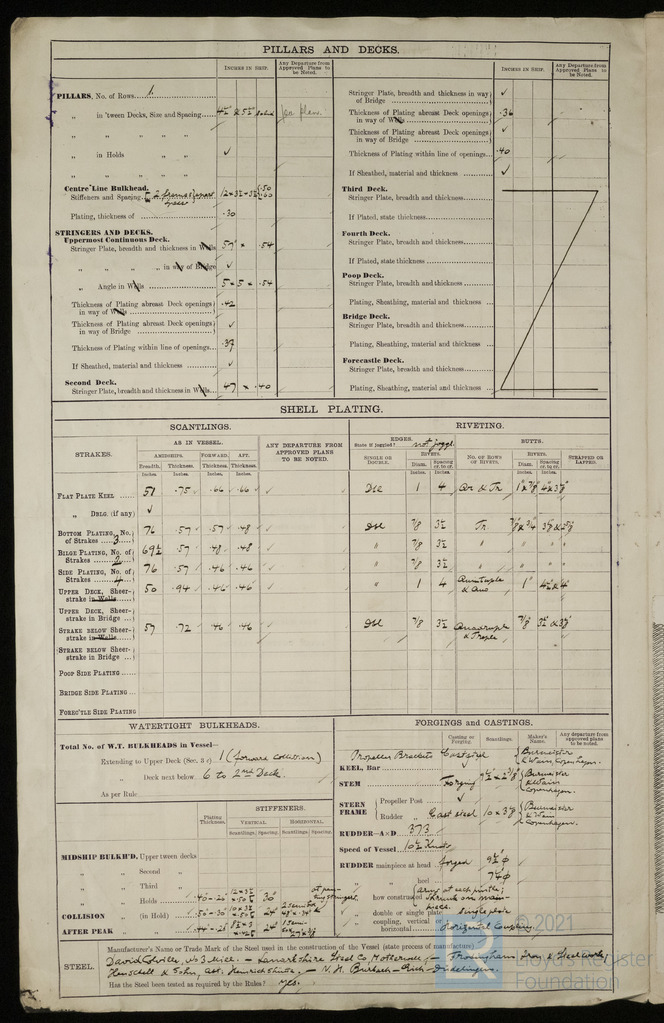 PILLARS AND DECKS.
INCHES IN SHIP.
Any Departure from Approved Plans to be Noted.
INCHES IN SHIP.
Any Departure from Approved Plans to be Noted.
PILLARS, No. of Rows 1.
„ in 'tween Decks, Size and Spacing per plan.
„ „ „ „
„ in Holds ✓
„ „ „ „
Centre Line Bulkhead.
Stiffeners and Spacing
Plating, thickness of .30
STRINGERS AND DECKS.
Uppermost Continuous Deck.
Stringer Plate, breadth and thickness in Wells 57 × .54
„ „ „ „ in way of Bridge ✓
„ Angle in Wells 5 × 5 × .54
Thickness of Plating abreast Deck openings in way of Wells .42
Thickness of Plating abreast Deck openings in way of Bridge ✓
Thickness of Plating within line of openings .37
If Sheathed, material and thickness ✓
Second Deck.
Stringer Plate, breadth and thickness in Wells 47 × .40
Stringer Plate, breadth and thickness in way of Bridge ✓
Thickness of Plating abreast Deck openings in way of Wells .36
Thickness of Plating abreast Deck openings in way of Bridge ✓
Thickness of Plating within line of openings .40
If Sheathed, material and thickness ✓
Third Deck.
Stringer Plate, breadth and thickness
If Plated, state thickness
Fourth Deck.
Stringer Plate, breadth and thickness
If Plated, state thickness
Poop Deck.
Stringer Plate, breadth and thickness
Plating, Sheathing, material and thickness
Bridge Deck.
Stringer Plate, breadth and thickness
Plating, Sheathing, material and thickness
Forecastle Deck.
Stringer Plate, breadth and thickness
Plating, Sheathing, material and thickness
SHELL PLATING.
SCANTLINGS.
RIVETING.
STRAKES.
AS IN VESSEL.
AMIDSHIPS. FORWARD. AFT.
Breadth. Thickness. Thickness. Thickness.
Inches. Inches. Inches. Inches.
ANY DEPARTURE FROM APPROVED PLANS TO BE NOTED.
EDGES.
State if joggled?
BUTTS.
SINGLE OR DOUBLE.
RIVETS.
Diam. Spacing cr. to cr.
Inches. Inches.
No. OF ROWS OF RIVETS.
RIVETS.
Diam. Spacing cr. to cr.
Inches. Inches.
STRAPPED OR LAPPED.
FLAT PLATE KEEL 51 .75 .66 .66 ✓ Dle 1 4
„ DBLG. (if any) ✓
BOTTOM PLATING, No. of Strakes 3 76 .57 .57 .48 ✓ Dle 7/8 3½ Tr
BILGE PLATING, No. of Strakes 2 69½ .57 .48 .48 ✓ „ 7/8 3½ „ „ „
SIDE PLATING, No. of Strakes 4 76 .57 .46 .46 ✓ „ 7/8 3½ „ „ „
UPPER DECK, Sheerstrake in Wells 50 .94 .46 .46 ✓ „ 1 4
UPPER DECK, Sheerstrake in Bridge
STRAKE BELOW Sheerstrake in Wells 57 .72 .46 .46 ✓ Dle 7/8 3½
STRAKE BELOW Sheerstrake in Bridge
POOP SIDE PLATING
BRIDGE SIDE PLATING
FORE'C'TLE SIDE PLATING
WATERTIGHT BULKHEADS.
Total No. of W.T. BULKHEADS in Vessel—
Extending to Upper Deck (Sec. 3 c) 1 (forward collision)
„ Deck next below 6 to 2nd Deck.
As per Rule
Plating Thickness.
STIFFENERS.
VERTICAL. HORIZONTAL.
Scantlings. Spacing. Scantlings. Spacing.
MIDSHIP BULKH'D, Upper tween decks
„ „ Second „
„ „ Third „
„ „ Holds 30"
COLLISION „ (in Hold) 24"
AFTER PEAK „ „ 24"
FORGINGS and CASTINGS.
Casting or Forging. Scantlings. Maker's Name. Any departure from approved plans to be noted.
Propeller Brackets Cast steel Burmeister & Wain, Copenhagen.
KEEL, Bar
STEM Forging Burmeister & Wain Copenhagen.
STERN FRAME Propeller Post ✓
Rudder „ Cast steel 10 × 3⅜ Burmeister & Wain Copenhagen.
RUDDER—A×D 373
Speed of Vessel 10½ Knots
RUDDER mainpiece at head forged 9½"φ
„ „ heel 7¼"φ
„ how constructed Arms at each pintle; shrunk on mainpiece.
„ double or single plate Single plate
„ coupling, vertical or horizontal Horizontal Coupling
STEEL.
Manufacturer's Name or Trade Mark of the Steel used in the construction of the Vessel (state process of manufacture)
David Colville, — Lanarkshire Steel Co, Motherwell, — Frodingham Iron & Steel works
Henschell & Sohn, abt. Henrichshütte. —
Has the Steel been tested as required by the Rules? Yes.
© 2021
Lloyd's Register
Foundation